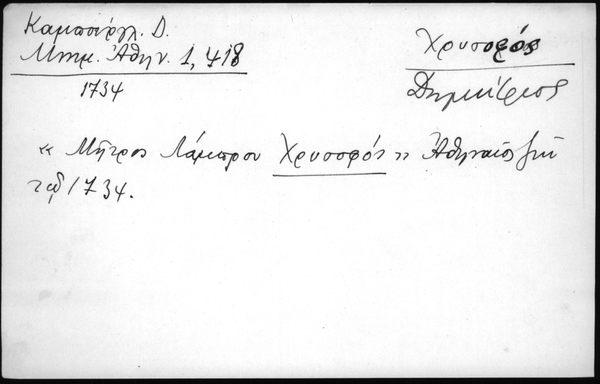 Καμπούργλ. Δ.
Μνημ. Ἀθην. 1, 418
1734
Χρυσοφός
Δημήτριος
« Μῆτρος Λάμπρου Χρυσοφός » Ἀθηναῖος ζῇ
τῷ 1734.